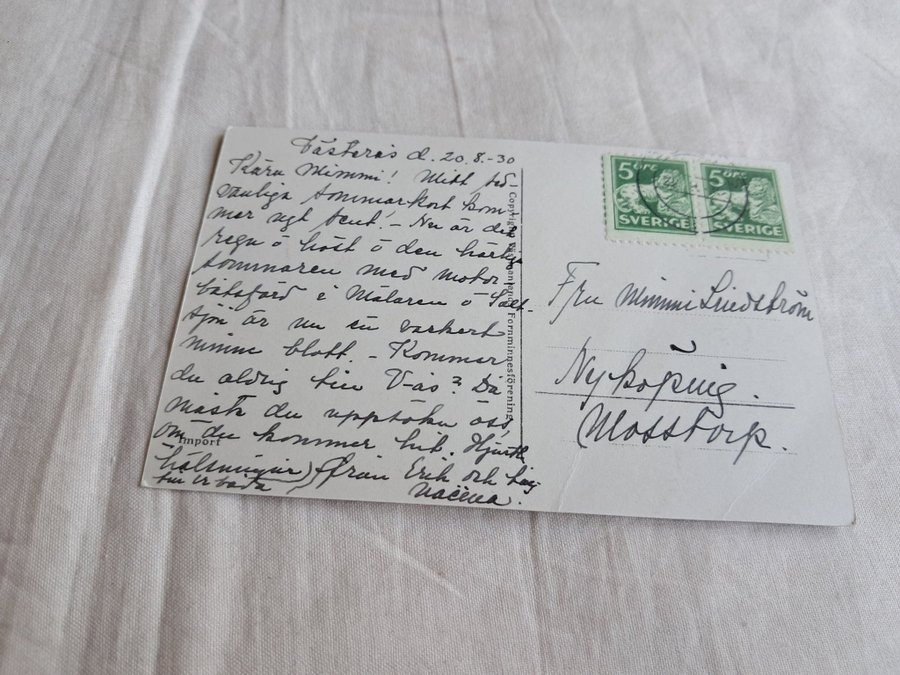 Västerås d. 20.8.-30
Kära Mimmi! Mitt sed
vanliga sommarkort kom-
mer ngt sent! - Nu är det
regn o höst o den härliga
sommaren med motor-
båtsfärd i Mälaren o Salt-
sjön är nu en vackert
minne blott. - Kommer
du aldrig till V-ås? Då
måste du uppsöka oss,
om du kommer hit. Hjärtl.
hälsningar från Erik och
till er båda
Import
Copyright Fornminnesförening
5 ÖRE
SVERIGE
5 ÖRE
SVERIGE
Fru Mimmi Lindström
Nyköping.
Mosstorp.